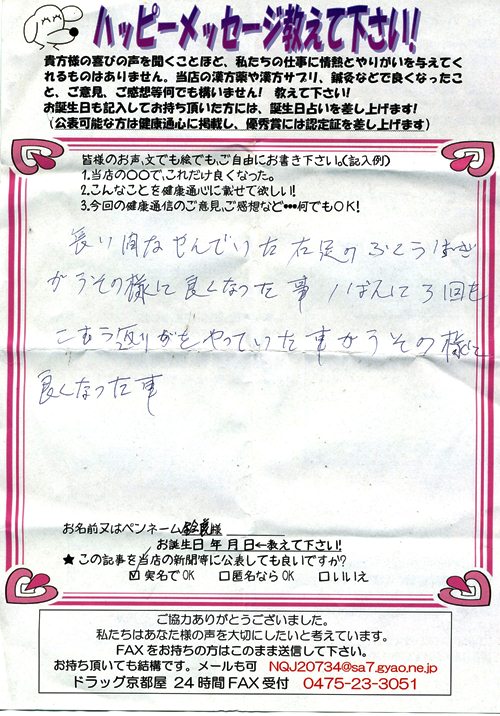 ハッピーメッセージ教えて下さい!
貴方様の喜びの声を聞くことほど、私たちの仕事に情熱とやりがいを与えてく
れるものはありません。当店の漢方薬や漢方サプリ、鍼灸などで良くなったこ
と、ご意見、ご感想等何でも構いません! 教えて下さい!
お誕生日も記入してお持ち頂いた方には、誕生日占いを差し上げます!
(公表可能な方は健康通心に掲載し、優秀賞には認定証を差し上げます)
皆様のお声、文でも絵でも、ご自由にお書き下さい。(記入例)
1.当店の〇〇で、これだけ良くなった。
2.こんなことを健康通心に載せて欲しい!
3.今回の健康通信のご意見、ご感想など・・・何でもOK!
長い間なやんでいた右足のふくらはぎ
がうその様に良くなった事 1ばんに3回も
こむら返りがをやっていた事がうその様に
良くなった事
お名前又はペンネーム 様
お誕生日 年 月 日←教えて下さい!
★この記事を当店の新聞等に公表しても良いですか?
☑実名でOK □匿名ならOK □いいえ
ご協力ありがとうございました。
私たちはあなた様の声を大切にしたいと考えています。
FAXをお持ちの方はこのまま送信して下さい。
お持ち頂いても結構です。メールも可 NQJ20734@sa7.gyao.ne.jp
ドラッグ京都屋 24時間FAX受付 0475-23-3051